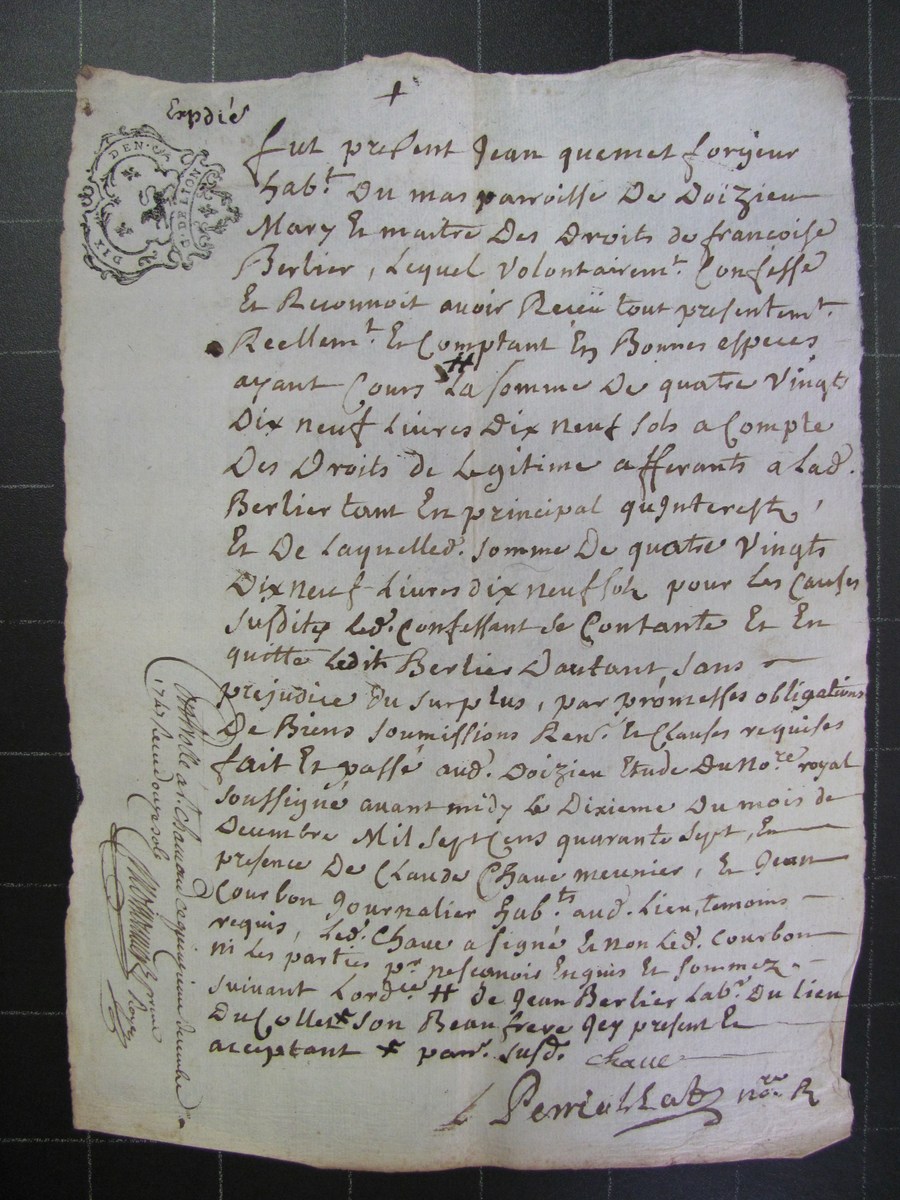 Expdié
+
DIX DEN. G. D. DE LION
fut present Jean quemet forgeur
hab.t Du mas parroisse De Doizieu
Mary Et maitre Des Droits de francoise
Berlier, Lequel Volontairem.t Confesse
Et Reconnoit avoir Receü tout presentem.t
Reellem.t Et Comptant En Bonnes especes
ayant Cours # La somme De quatre Vingts
Dix neuf Livres Dix neuf sols a Compte
Des Droits de Legitime afferants a Lad.
Berlier tant En principal qu'Interests,
Et De Laquelled. somme De quatre Vingts
Dix neuf Livres dix neuf sols pour Les Causes
susdites Led. Confessant se Contante Et En
quitte Ledit Berlier Dautant, sans
prejudice du surplus, par promesses obligations
De Biens soumissions Ren.s Et Clauses requises
fait Et passé aud. Doizieu Etude Du No.re royal
soussigné avant midy Le Dixieme Du mois de
Decembre Mil Sept Cens quarante Sept, En
presence De Claude Chave meunier, Et Jean
Courbon Journalier hab.ts aud. Lieu, temoins
requis, Led. Chave a signé Et non Led. Courbon
ni Les parties p.r ne scavoir Enquis Et sommez
suivant Lord.ce # de Jean Berlier Lab.r Du lieu
Du Collet + son Beau frere Jcy present Et
acceptant + parr. susd.
Chave
no.re R
Controllé a St. Chamond ce quinzieme decembre
1747 Recu douze sols